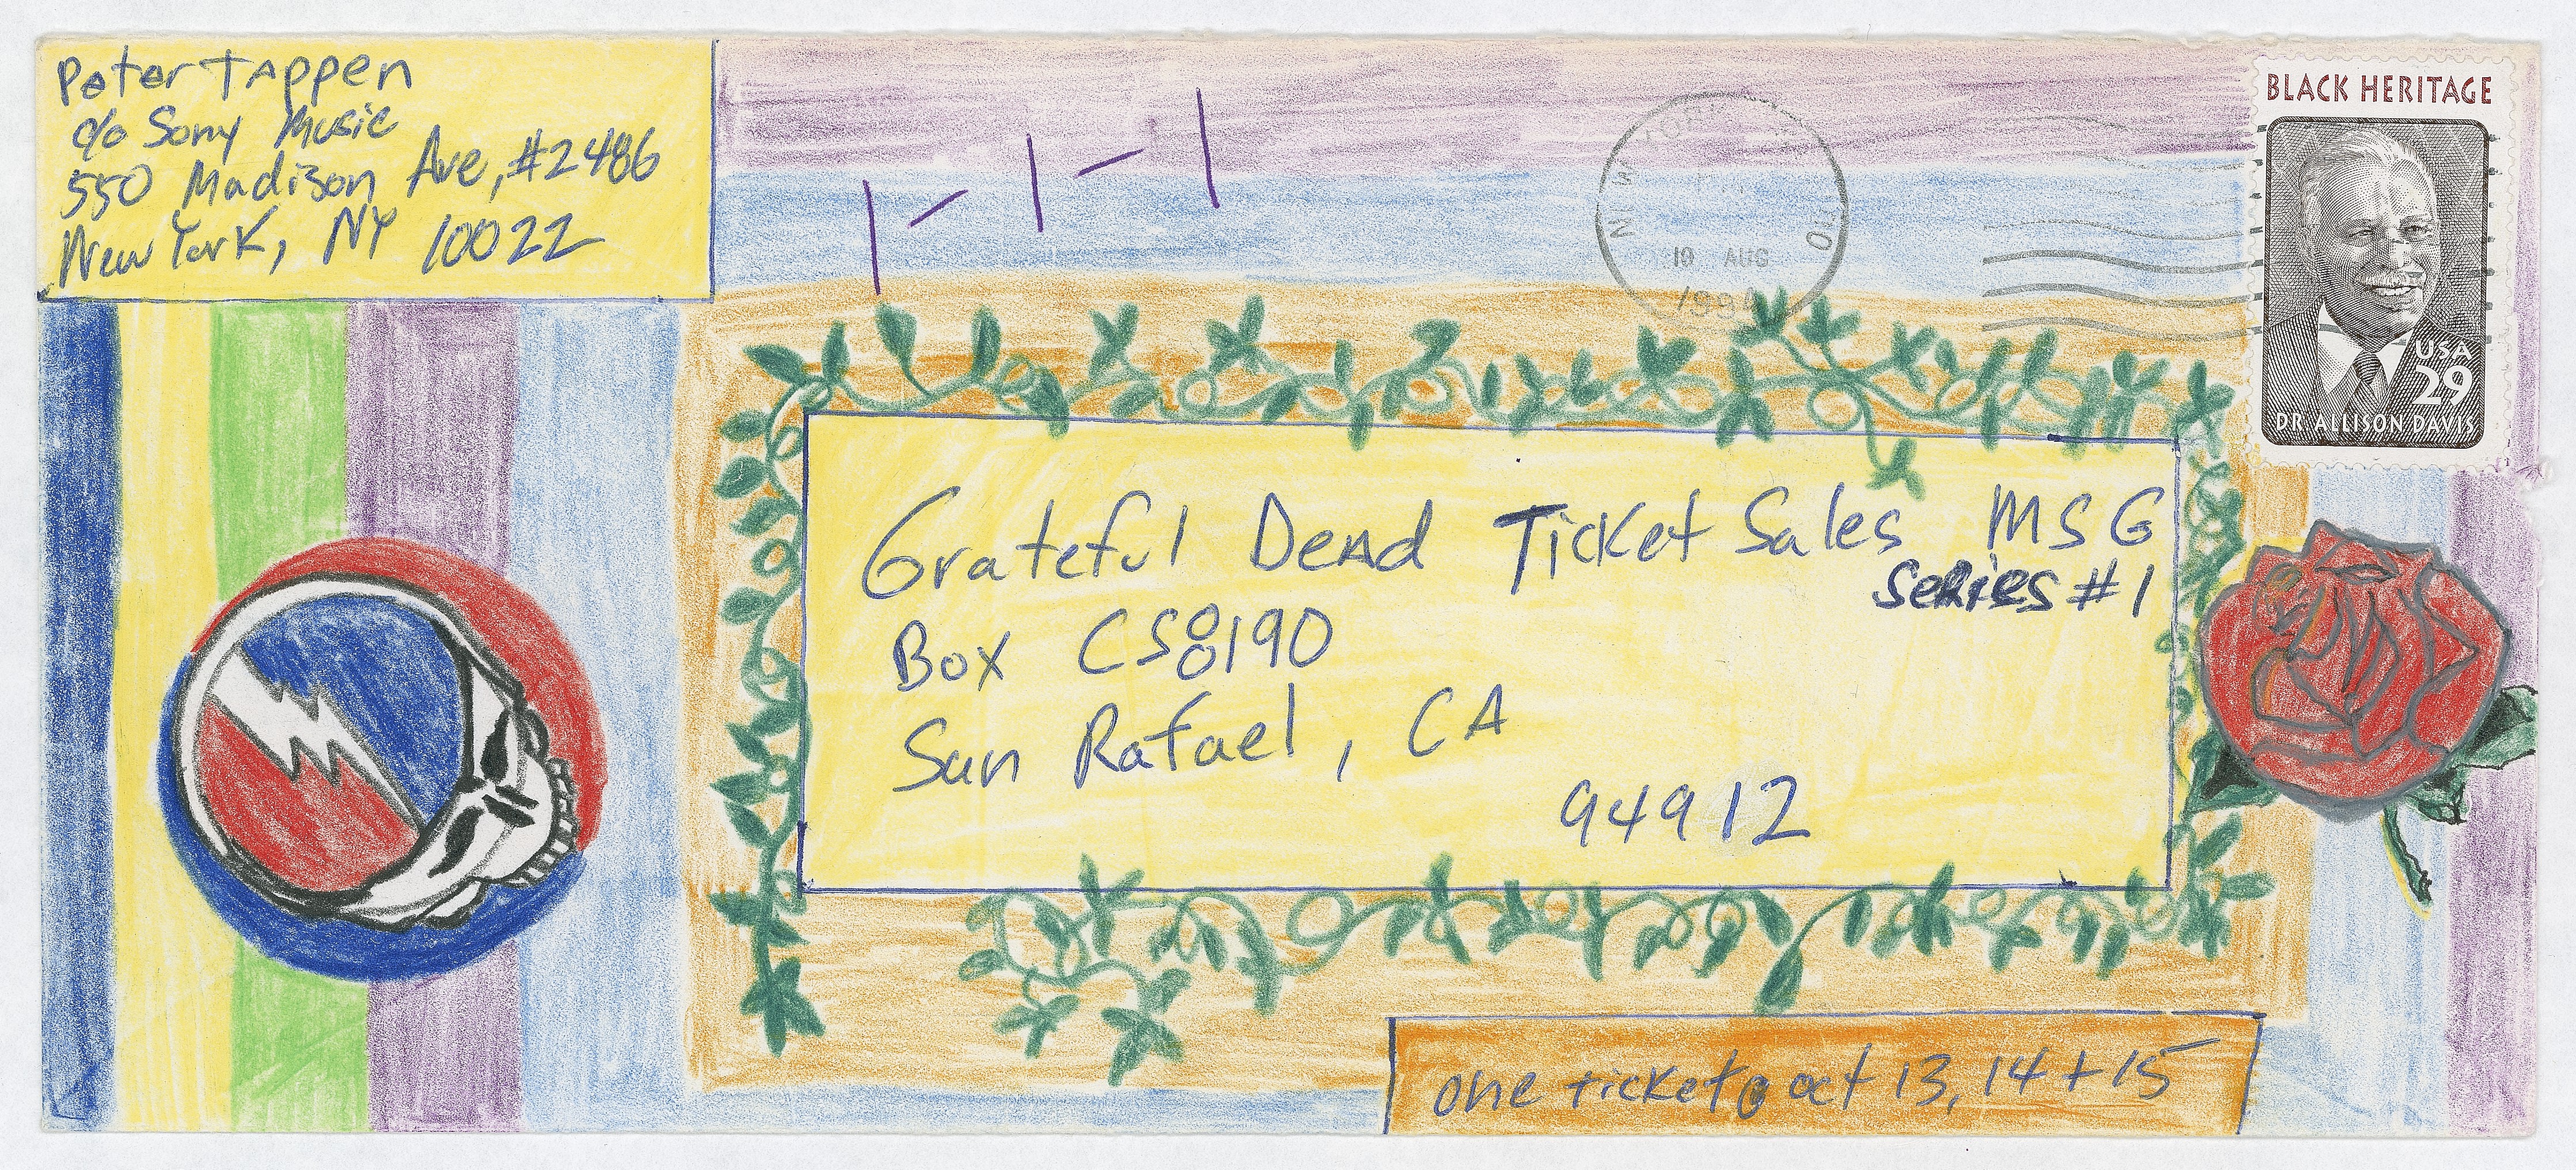 Peter Tappen
c/o Sony Music
550 Madison Ave, #2486
New York, NY 10022
1-1-1
10 AUG
199
BLACK HERITAGE
USA
29
DR ALLISON DAVIS
Grateful Dead Ticket Sales MSG
Series #1
Box CS8190
San Rafael, CA
94912
one ticket @ oct 13, 14 + 15